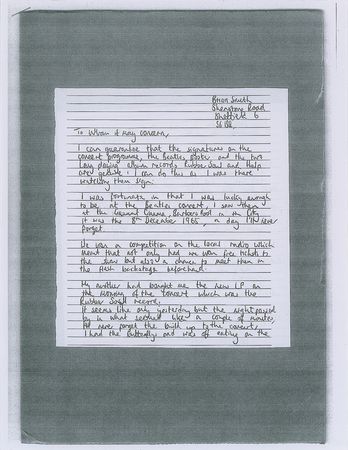 Brian Smith
Shenstone Road
Sheffield 6
S6
To Whom it May Concern,
I can guarantee that the signatures on the
concert programme, the Beatles poster and the two
Long playing album records Rubber Soul and Help
are genuine. I can do this as I was there
watching them sign.
I was fortunate in that I was lucky enough
to be at the Beatles concert, I saw them
at the Gaumont Cinema, Barkers Pool in my City
it was the 8th December 1965, a day I'll never
forget.
was a competition on the local radio which
meant that not only had we won free tickets to
the show but also a chance to meet them in
the flesh backstage beforehand.
My mother had bought me the new LP on
the morning of the concert which was the
Rubber Soul record.
It seems like only yesterday but the night passed
by in what seemed like a couple of minutes,
never forget the build up to the concert,
I had the butterflies and was off eating on the